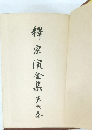 釋宗演全集 第六卷